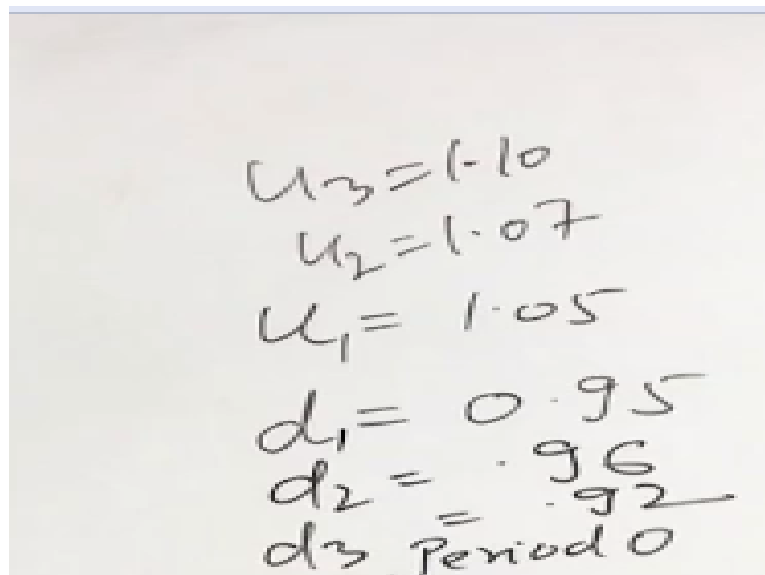 u3 = 1.10
u2 = 1.07
u1 = 1.05
d1 = 0.95
d2 = .96
d3 = .92
Period 0